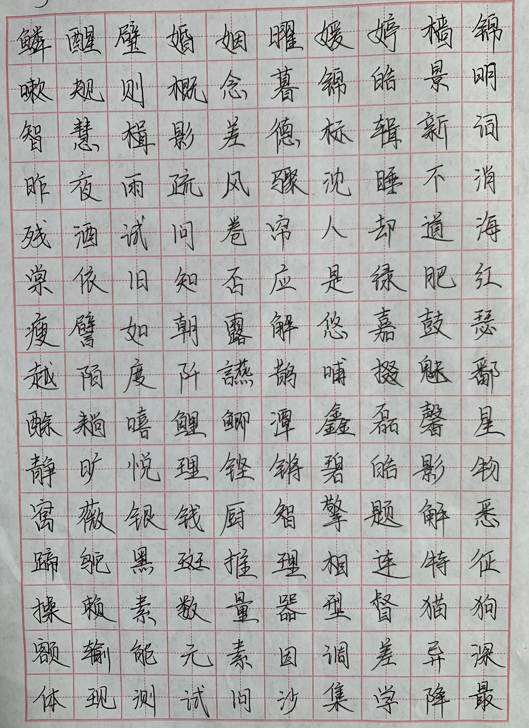 鳞醒壁婚姻曜媛婷樯锦
嗽规则概念暮锦皓景明
智慧楫影差德标辑新词
昨夜雨疏风骤沈睡不消
残酒试问卷帘人却道海
棠依旧知否应是绿肥红
瘦譬如朝露解悠嘉鼓瑟
越陌度阡讌鹊哺掇魅鄱
酴耥嘻鲤鲫潭鑫磊馨星
静旷悦理铿锵碧皓影物
窝薇银钱厨智擎题解悉
蹄驼黑斑推理相连特征
操赖素数量器型督猫狗
额输能元素因调差异深
体现测试问沙集学降最